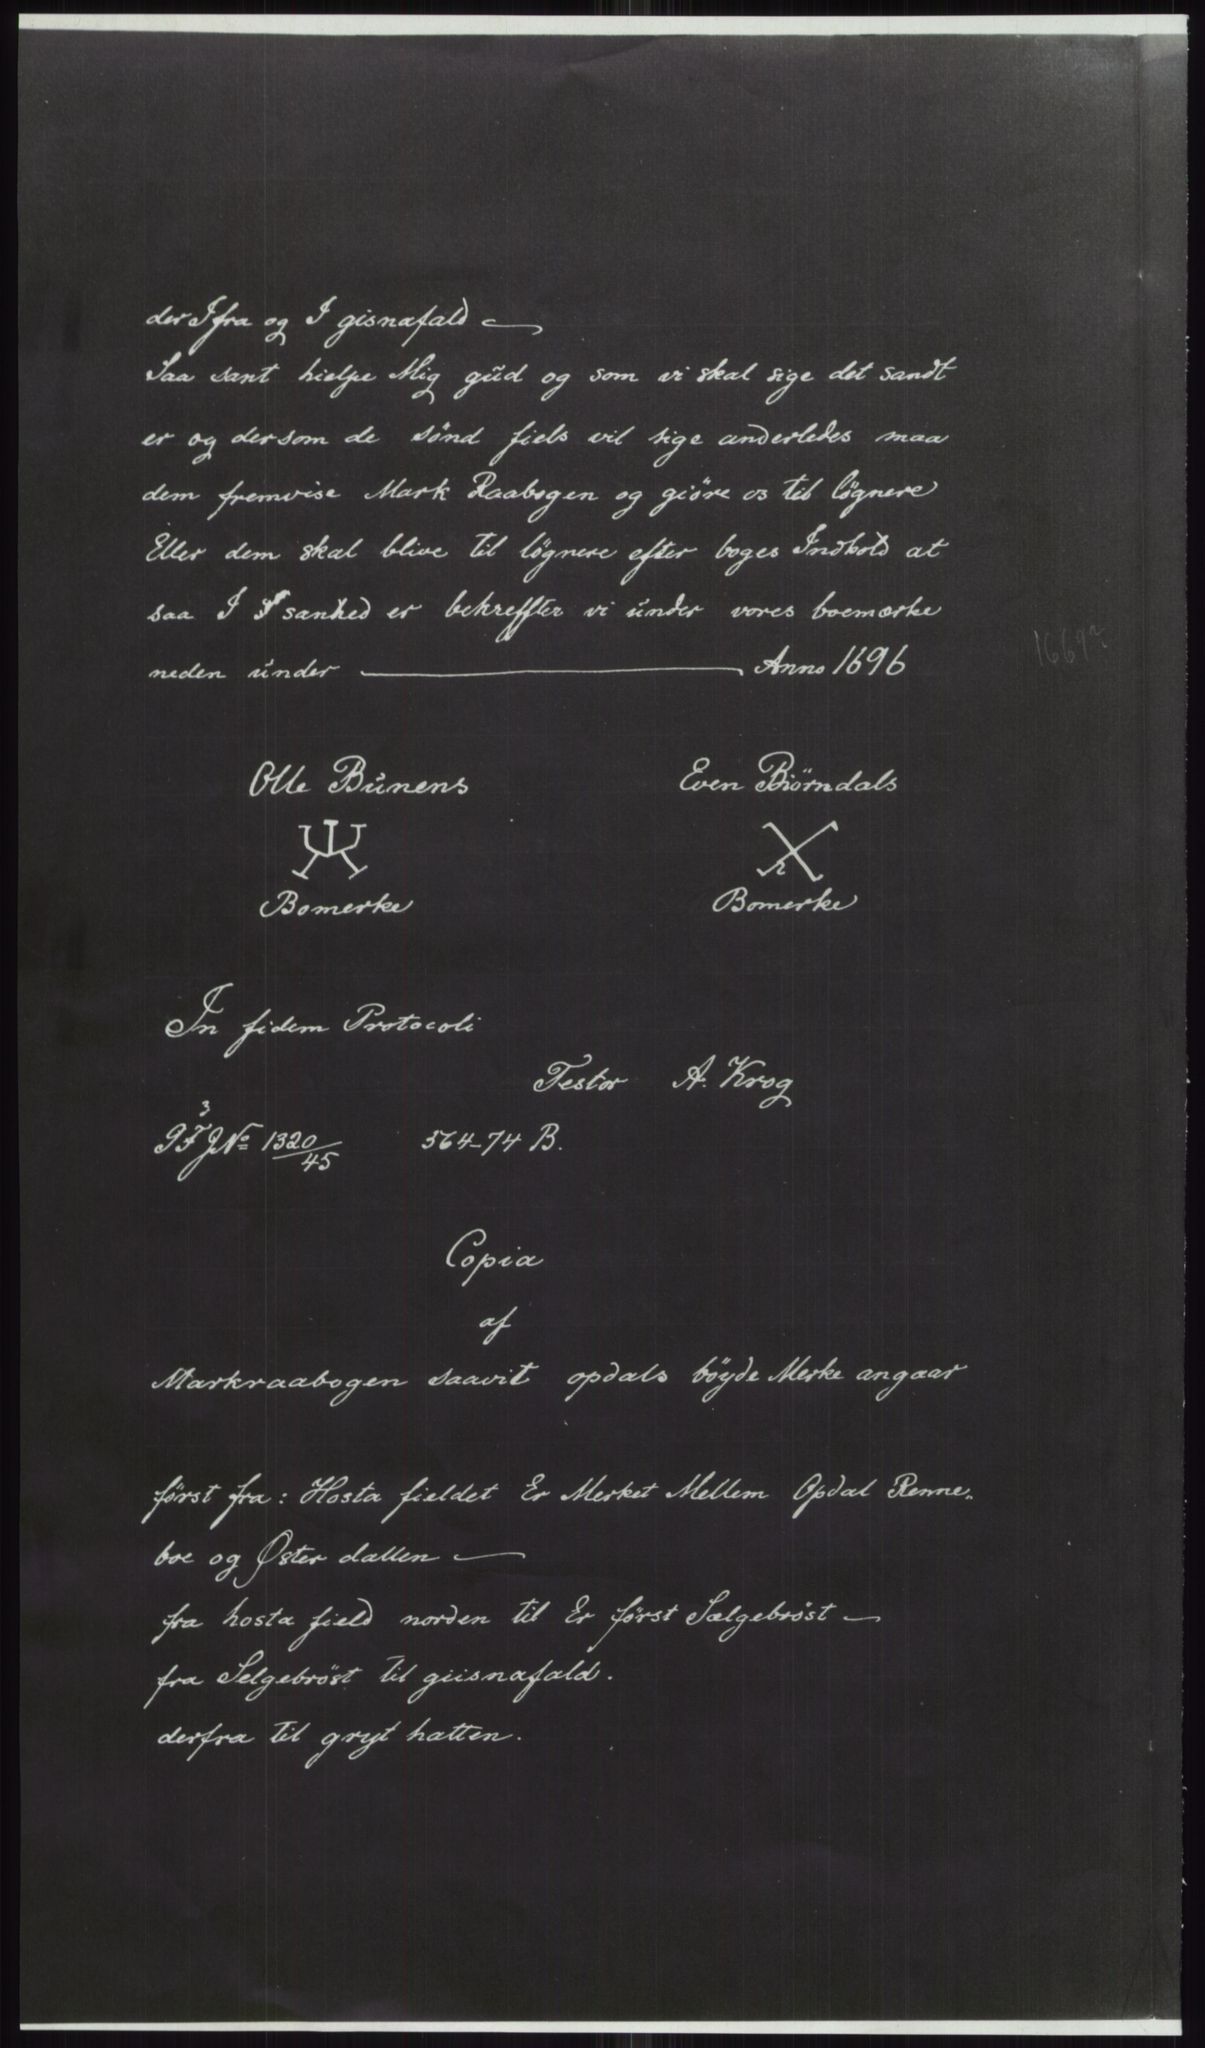 der Ifra og I gisnafald —
Saa sant hielpe Mig gŭd og som vi skal sige det sandt
er og dersom de sønd fiels vil sige anderledes maa
dem fremvise Mark Raabogen og giöre os til løgnere
Eller dem skal blive til løgnere efter boges Indhold at
saa I sanhed er bekreffter vi ŭnder vores boemærke
neden ŭnder — Anno 1696
1669?
Olle Bŭnens Even Biörndals
Bomerke Bomerke
In fidem Protocoli
Testor A. Krog
3
JNo 1320/45 564-74 B.
Copia
af
Markraabogen saavit opdals böyde Merke angaar
først fra: Hosta fieldet Er Merket Mellem Opdal Renne„
boe og Øster dallen —
fra hosta field norden til Er først Sælgebrøst —
fra Selgebrøst til giisnafald.
derfra til gryt hatten.